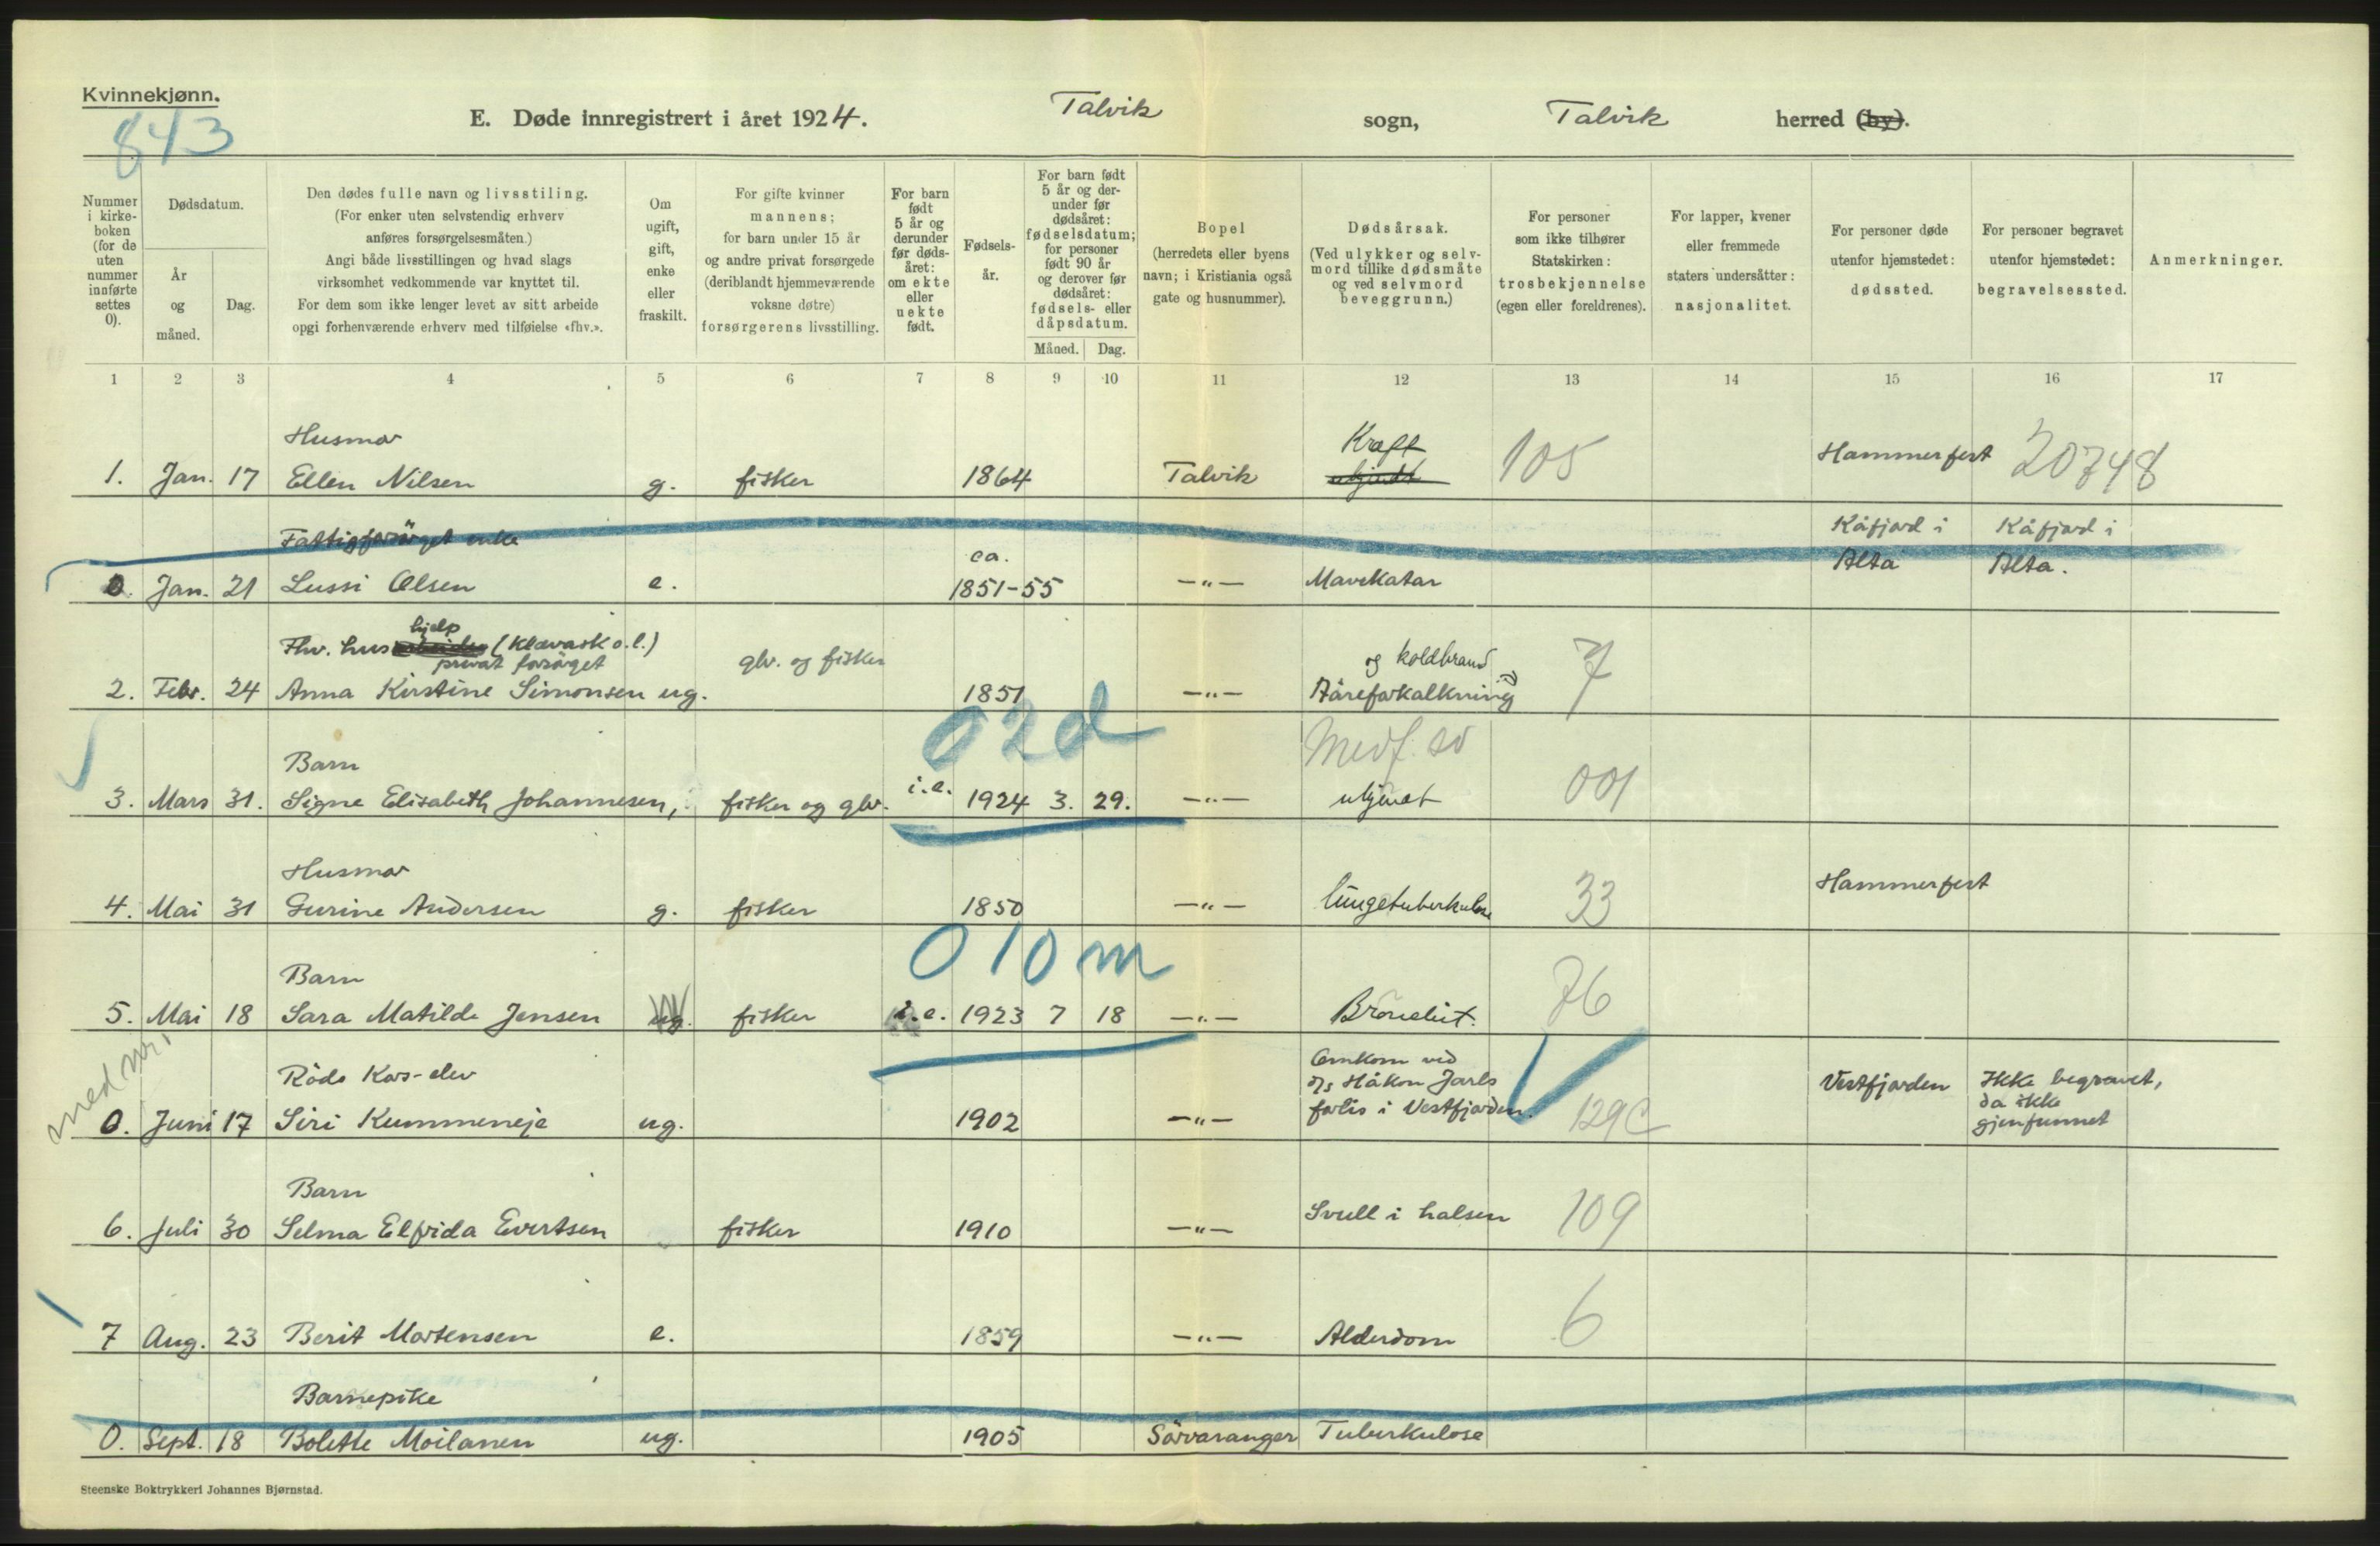 Kvinnekjønn.
843
E. Døde innregistrert i året 1924.
Talvik sogn, Talvik herred (by).
Nummer i kirke- boken (for de uten nummer innførte settes 0).
Dødsdatum.
År og måned.
Dag.
Den dødes fulle navn og livsstiling.
(For enker uten selvstendig erhverv
anføres forsørgelsesmåten.)
Angi både livsstillingen og hvad slags
virksomhet vedkommende var knyttet til.
For dem som ikke lenger levet av sitt arbeide
opgi forhenværende erhverv med tilføielse «fhv.».
Om ugift, gift, enke eller fraskilt.
For gifte kvinner
mannens;
for barn under 15 år
og andre privat forsørgede
(deriblandt hjemmeværende
voksne døtre)
forsørgerens livsstilling.
For barn født 5 år og derunder før døds- året: om ekte eller uekte født.
Fødsels- år.
For barn født 5 år og der- under før dødsåret: fødselsdatum; for personer født 90 år og derover før dødsåret: fødsels- eller dåpsdatum.
Måned. Dag.
Bopel
(herredets eller byens
navn; i Kristiania også
gate og husnummer).
Dødsårsak.
(Ved ulykker og selv-
mord tillike dødsmåte
og ved selvmord
beveggrunn.)
For personer
som ikke tilhører
Statskirken:
trosbekjennelse
(egen eller foreldrenes).
For lapper, kvener
eller fremmede
staters undersåtter:
nasjonalitet.
For personer døde
utenfor hjemstedet:
dødssted.
For personer begravet
utenfor hjemstedet:
begravelsessted.
Anmerkninger.
1 2 3 4 5 6 7 8 9 10 11 12 13 14 15 16 17
Husmor Kræft
1. Jan. 17 Ellen Nilsen g. fisker 1864 Talvik ukjendt 105 Hammerfest 20748
Fattigforsörget enke ca. Kåfjord i Kåfjord i
0. Jan. 21 Lussi Olsen e. 1851-55 —"— Mavekatar Alta Alta.
hjelp
Fhv. hus (Klævask o.l.)
privat forsörget glv. og fisker og koldbrand
2. Febr. 24 Anna Kirstine Simonsen ug. 1851 —"— Åreforkalkning 7
02d
Barn Medf. sv
3. Mars 31. Signe Elisabeth Johannesen, fisker og glv. i.e. 1924 3. 29. —"— ukjendt 001
Husmor
4. Mai 31 Gurine Andersen g. fisker 1850 —"— lungetuberkulose 33 Hammerfest
010m
Barn
5. Mai 18 Sara Matilde Jensen ug. fisker i.e. 1923 7 18 —"— Bronchit. 76
med nr.
Röde Kors-elev Omkom ved
D/s Håkon Jarls Vestfjorden Ikke begravet,
0. Juni 17 Siri Kummeneje ug. 1902 —"— forlis i Vestfjorden. 129C da ikke
gjenfunnet
Barn
6. Juli 30 Selma Elfrida Evertsen fisker 1910 —"— Svull i halsen 109
7 Aug. 23 Berit Mortensen e. 1859 —"— Alderdom 6
Barnepike
0. Sept. 18 Bolette Moilanen ug. 1905 Sörvaranger Tuberkulose
Steenske Boktrykkeri Johannes Bjørnstad.